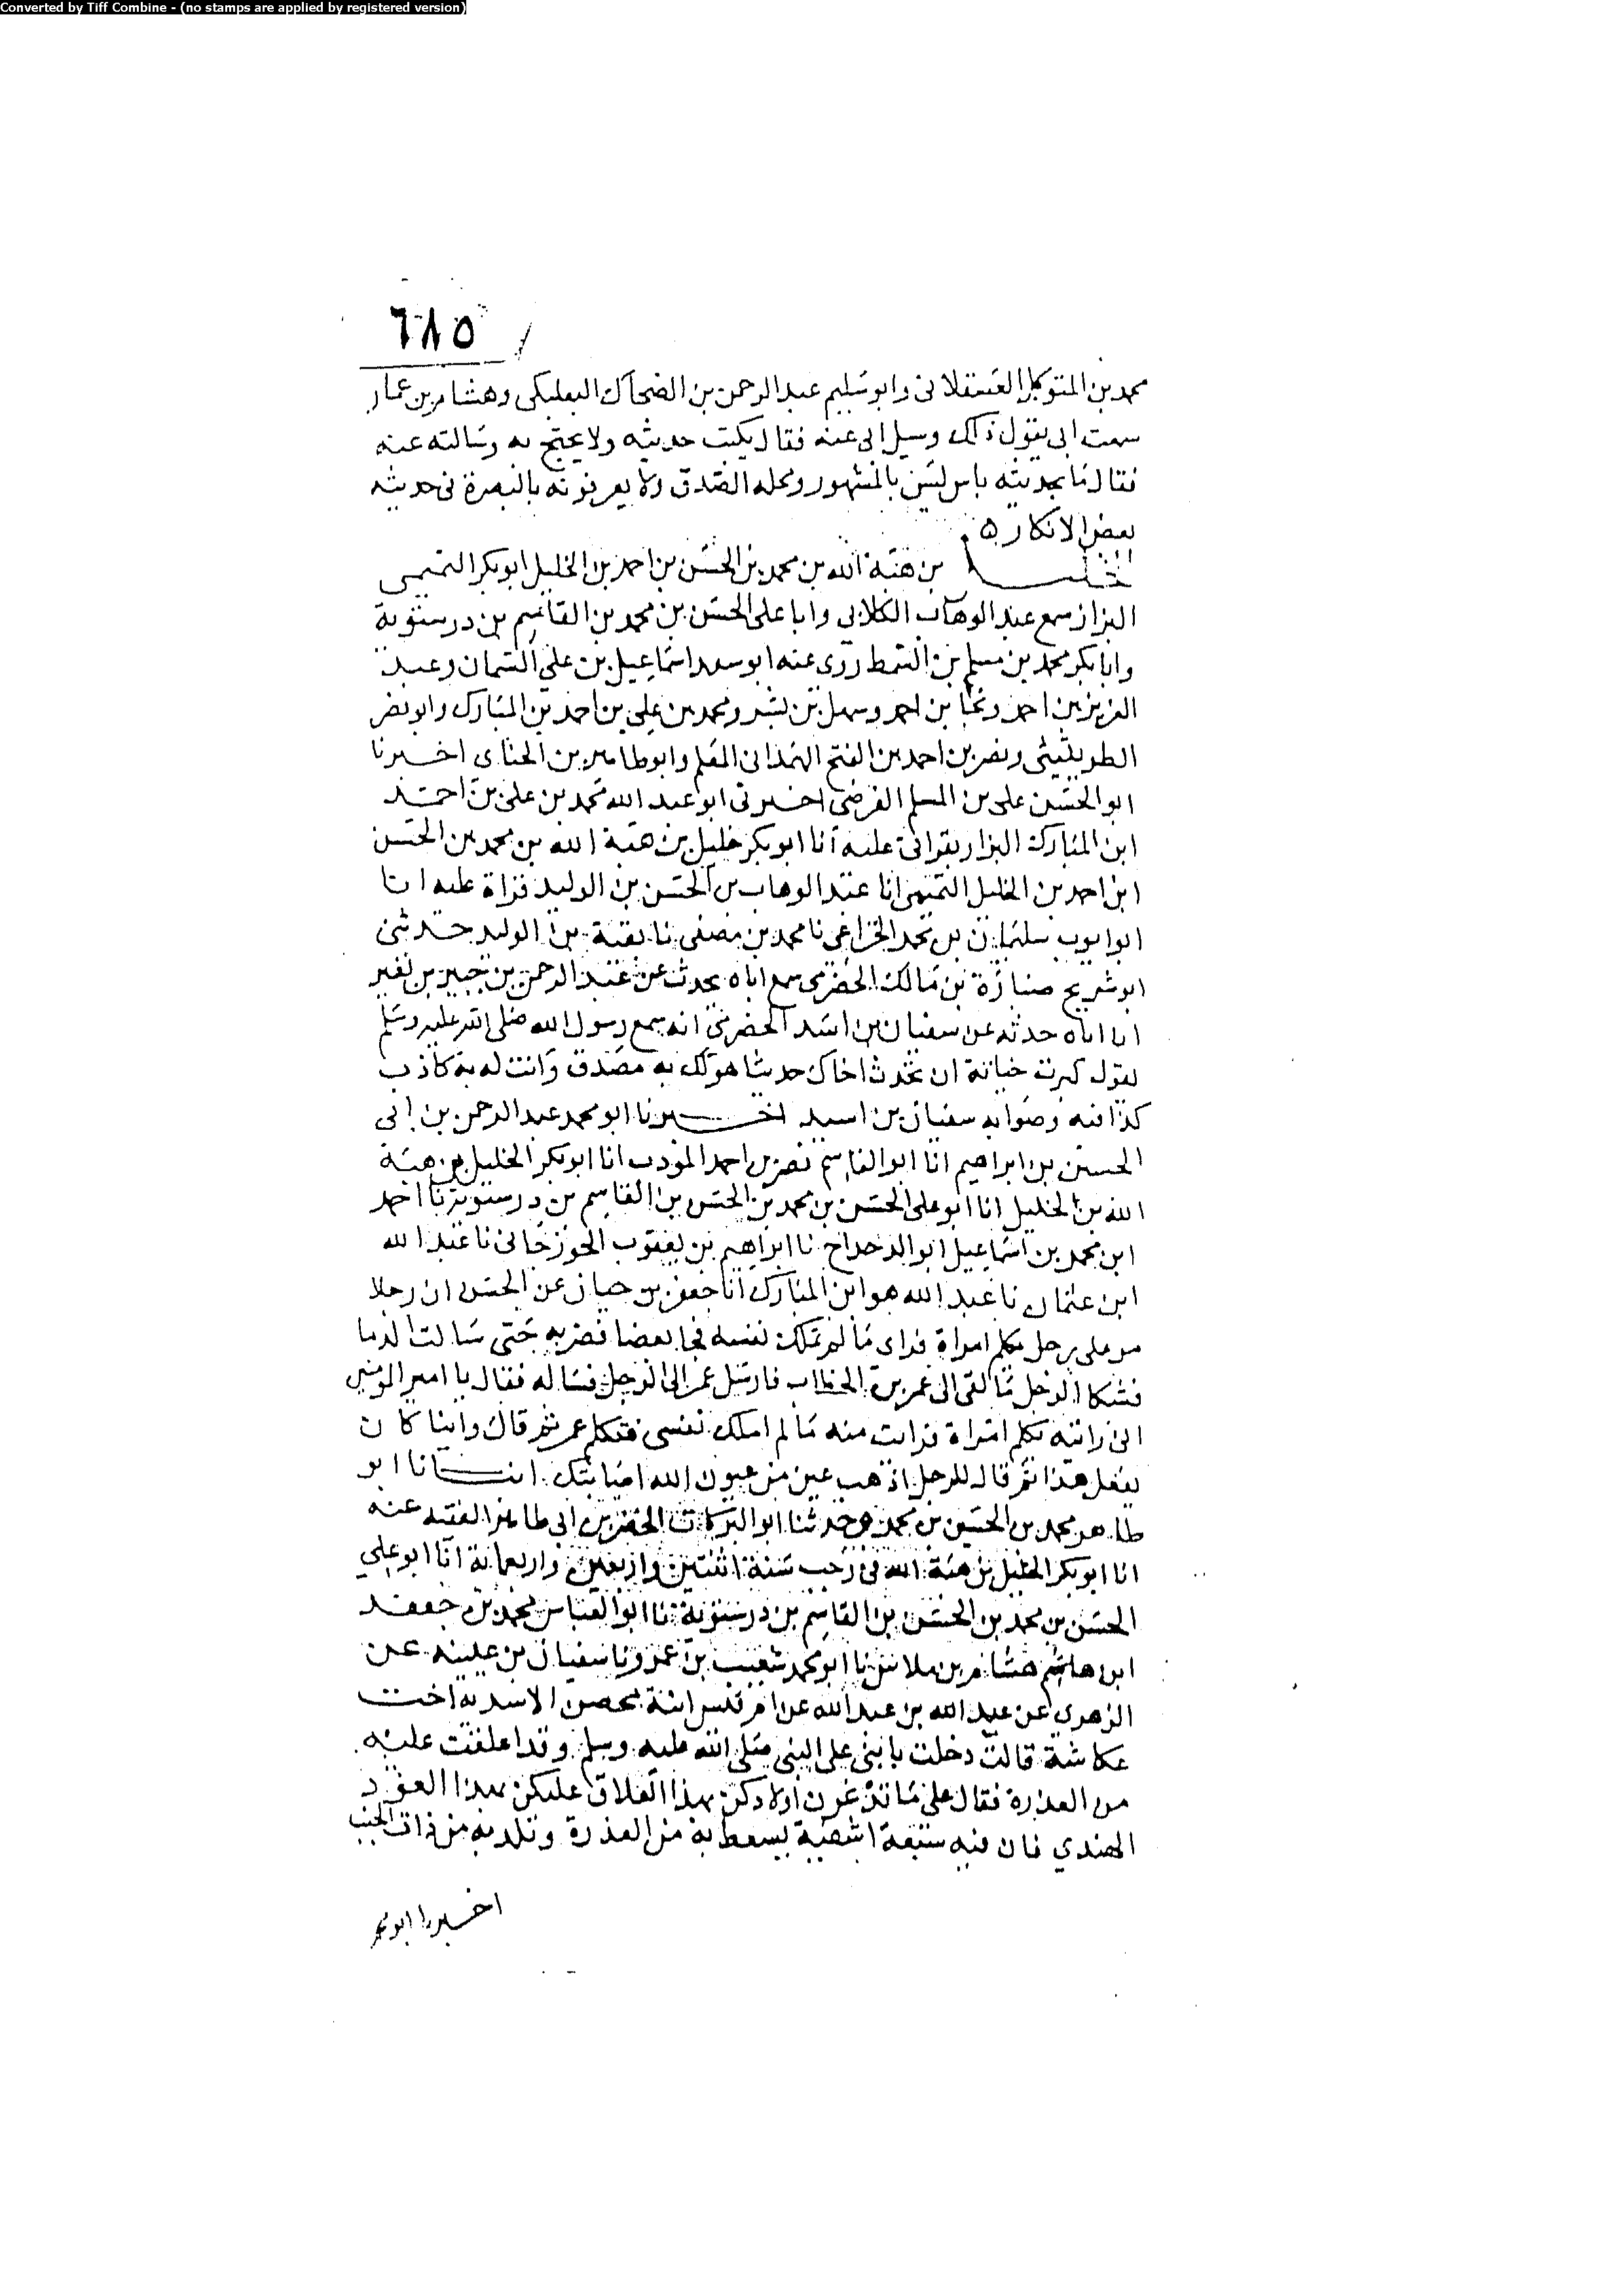 Converted by Tiff Combine - (no stamps are applied by registered version)
٦٨٥
محمد بن المتوكل العسقلانى وابو سليم عبد الرحمن بن الضحاك البعلبكى وهشام بن عمار
سمعت ابى يقول ذلك وسيل ابى عنه فقال يكتب حديثه ولا يحتج به وسالته عنه
فقال ما بحديثه باس ليس بالمشهور ومحله الصدق ولا يعرفونه بالبصرة فى حديثه
بعض الانكار ه
الخليل بن هبة الله بن محمد بن الحسن بن احمد بن الخليل ابو بكر التميمى
البزاز سمع عبد الوهاب الكلابى وابا على الحسن بن محمد بن القاسم بن درستويه
وابا بكر محمد بن مسلم بن السمط روى عنه ابو سعد اسماعيل بن على السمان وعبد
العزيز بن احمد ونجا بن احمد وسهل بن بشر ومحمد بن على بن احمد بن المبارك وابو نصر
الطريثيثى ونصر بن احمد بن الفتح الهمدانى المعلم وابو طاهر بن الحناى اخبرنا
ابو الحسن على بن المسلم الفرضى اخبرنى ابو عبد الله محمد بن على بن احمد
ابن المبارك البزاز بقراتى عليه انا ابو بكر خليل بن هبة الله بن محمد بن الحسن
ابن احمد بن الخليل التميمى انا عبد الوهاب بن الحسن بن الوليد قراة عليه انا
ابو ايوب سليمان بن محمد الخزاعى نا محمد بن مصفى نا بقية بن الوليد حدثنى
ابو شريح ضبارة بن مالك الحضرمى سمع اباه يحدث عن عبد الرحمن بن جبير بن نفير
ان اباه حدثه عن سفيان بن اسد الحضرمى انه سمع رسول الله صلى الله عليه وسلم
يقول كبرت خيانة ان تحدث اخاك حديثا هو لك به مصدق وانت له به كاذب
كذا فيه وصوابه سفيان بن اسيد اخبرنا ابو محمد عبد الرحمن بن ابى
الحسين بن ابراهيم انا ابو القاسم نصر بن احمد المودب انا ابو بكر الخليل بن هبة
الله بن الخليل انا ابو على الحسن بن محمد بن الحسن بن القاسم بن درستويه نا احمد
ابن محمد بن اسماعيل ابو الدحداح نا ابراهيم بن يعقوب الجوزجانى نا عبد الله
ابن عثمان نا عبد الله هو ابن المبارك انا جعفر بن حيان عن الحسن ان رجلا
مر على رجل يكلم امراة فراى ما لم تملك نفسه فجا بعصا فضربه حتى سالت الدما
فشكا الرجل ما لقى الى عمر بن الخطاب فارسل عمر الى الرجل فساله فقال يا امير المومنين
انى رايته يكلم امراة فرايت منه ما لم املك نفسى فتكلم عمر ثم قال واينا كان
يفعل هذا ثم قال للرجل اذهب عين من عيون الله اصابتك انبانا ابو
طاهر محمد بن الحسين بن محمد وحدثنا ابو البركات الخضر بن ابى طاهر الفقيه عنه
انا ابو بكر الخليل بن هبة الله فى رجب سنة اثنتين واربعين واربعماية انا ابو على
الحسن بن محمد بن الحسن بن القاسم بن درستويه نا ابو العباس محمد بن جعفر
ابن هاشم هشام بن ملاس نا ابو محمد شعيب بن عمرو نا سفيان بن عيينه عن
الزهرى عن عبيد الله بن عبد الله عن ام قيس ابنة محصن الاسديه اخت
عكاشة قالت دخلت بابنى على النبى صلى الله عليه وسلم وقد اعلقت عليه
من العذرة فقال على ما تدغرن اولادكن بهذا العلاق عليكن بهذا العود
الهندي فان فيه سبعة اشفية يسعط به من العذرة وتلد به من ذات الجنب
اخبرنا ابو محمد